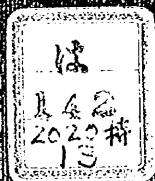 は
142
2020特
13